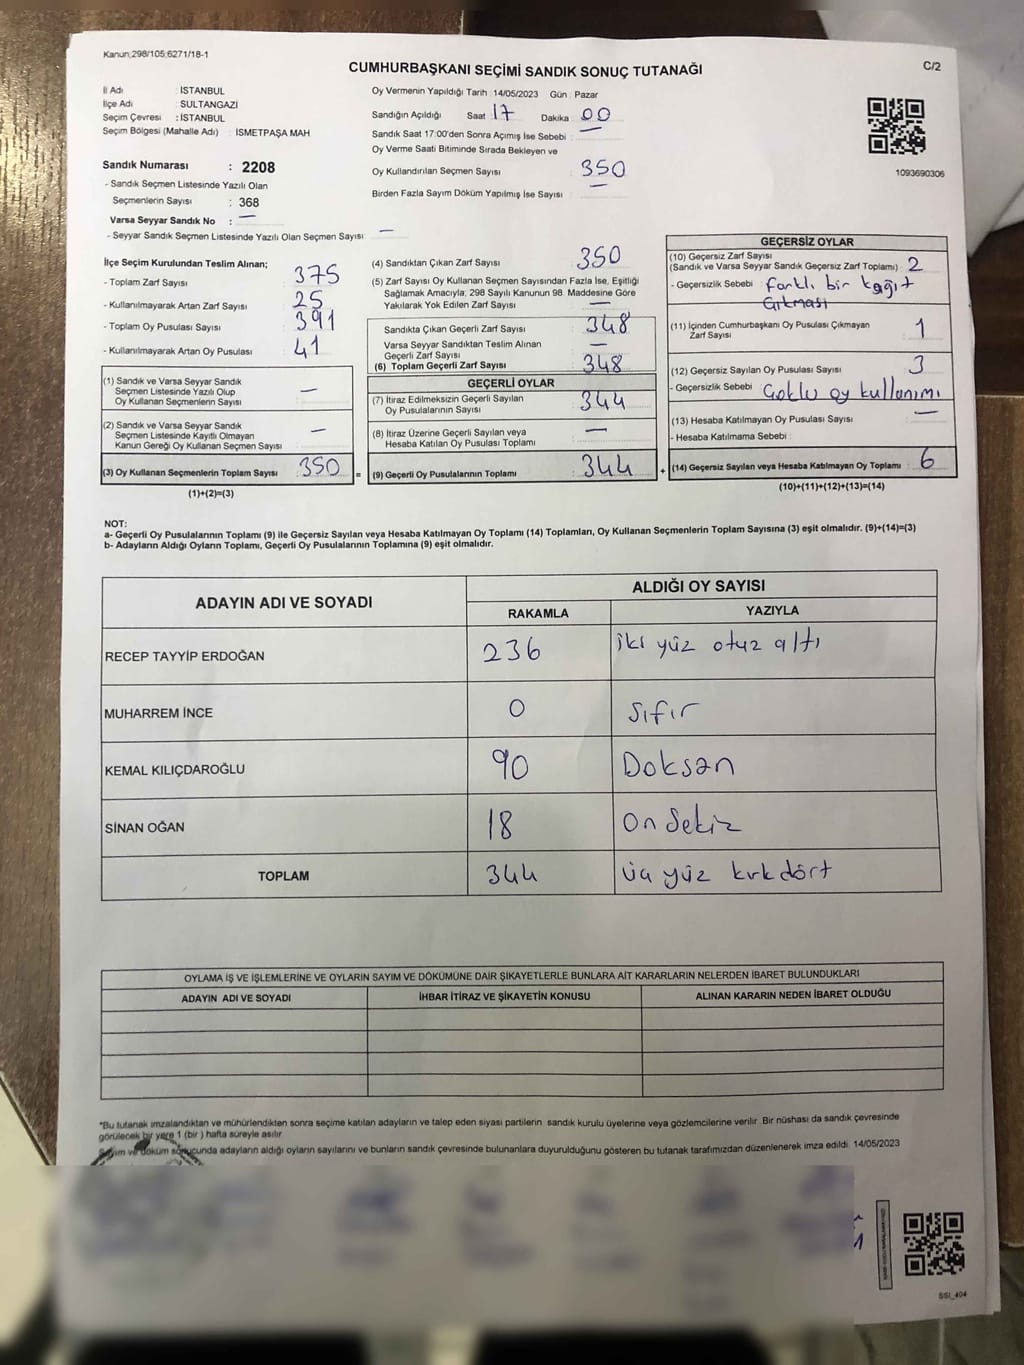 Kanun:298/105;6271/18-1
CUMHURBAŞKANI SEÇİMİ SANDIK SONUÇ TUTANAĞI
C/2
İl Adı : İSTANBUL
İlçe Adı : SULTANGAZİ
Seçim Çevresi : İSTANBUL
Seçim Bölgesi (Mahalle Adı) : İSMETPAŞA MAH
Sandık Numarası : 2208
- Sandık Seçmen Listesinde Yazılı Olan
Seçmenlerin Sayısı : 368
Varsa Seyyar Sandık No : —
- Seyyar Sandık Seçmen Listesinde Yazılı Olan Seçmen Sayısı: —
Oy Vermenin Yapıldığı Tarih : 14/05/2023 Gün : Pazar
Sandığın Açıldığı Saat 17 Dakika : 00
Sandık Saat 17:00'den Sonra Açılmış İse Sebebi : —
Oy Verme Saati Bitiminde Sırada Bekleyen ve
Oy Kullandırılan Seçmen Sayısı : 350
Birden Fazla Sayım Döküm Yapılmış İse Sayısı : —
1093690306
İlçe Seçim Kurulundan Teslim Alınan;
- Toplam Zarf Sayısı : 375
- Kullanılmayarak Artan Zarf Sayısı : 25
- Toplam Oy Pusulası Sayısı : 391
- Kullanılmayarak Artan Oy Pusulası : 41
(1) Sandık ve Varsa Seyyar Sandık
Seçmen Listesinde Yazılı Olup
Oy Kullanan Seçmenlerin Sayısı : —
(2) Sandık ve Varsa Seyyar Sandık
Seçmen Listesinde Kayıtlı Olmayan
Kanun Gereği Oy Kullanan Seçmen Sayısı : —
(3) Oy Kullanan Seçmenlerin Toplam Sayısı : 350 =
(1)+(2)=(3)
(4) Sandıktan Çıkan Zarf Sayısı : 350
(5) Zarf Sayısı Oy Kullanan Seçmen Sayısından Fazla İse, Eşitliği
Sağlamak Amacıyla, 298 Sayılı Kanunun 98. Maddesine Göre
Yakılarak Yok Edilen Zarf Sayısı : —
Sandıkta Çıkan Geçerli Zarf Sayısı : 348
Varsa Seyyar Sandıktan Teslim Alınan
Geçerli Zarf Sayısı : —
(6) Toplam Geçerli Zarf Sayısı : 348
GEÇERLİ OYLAR
(7) İtiraz Edilmeksizin Geçerli Sayılan
Oy Pusulalarının Sayısı : 344
(8) İtiraz Üzerine Geçerli Sayılan veya
Hesaba Katılan Oy Pusulası Toplamı : —
(9) Geçerli Oy Pusulalarının Toplamı : 344 +
GEÇERSİZ OYLAR
(10) Geçersiz Zarf Sayısı
(Sandık ve Varsa Seyyar Sandık Geçersiz Zarf Toplamı) : 2
- Geçersizlik Sebebi : farklı bir kağıt
çıkması
(11) İçinden Cumhurbaşkanı Oy Pusulası Çıkmayan
Zarf Sayısı : 1
(12) Geçersiz Sayılan Oy Pusulası Sayısı : 3
- Geçersizlik Sebebi : Çoklu oy kullanımı
(13) Hesaba Katılmayan Oy Pusulası Sayısı : —
- Hesaba Katılmama Sebebi :
(14) Geçersiz Sayılan veya Hesaba Katılmayan Oy Toplamı : 6
(10)+(11)+(12)+(13)=(14)
NOT:
a- Geçerli Oy Pusulalarının Toplamı (9) ile Geçersiz Sayılan veya Hesaba Katılmayan Oy Toplamı (14) Toplamları, Oy Kullanan Seçmenlerin Toplam Sayısına (3) eşit olmalıdır. (9)+(14)=(3)
b- Adayların Aldığı Oyların Toplamı, Geçerli Oy Pusulalarının Toplamına (9) eşit olmalıdır.
ADAYIN ADI VE SOYADI
ALDIĞI OY SAYISI
RAKAMLA YAZIYLA
RECEP TAYYİP ERDOĞAN 236 iki yüz otuz altı
MUHARREM İNCE 0 sıfır
KEMAL KILIÇDAROĞLU 90 Doksan
SİNAN OĞAN 18 on sekiz
TOPLAM 344 üç yüz kırk dört
OYLAMA İŞ VE İŞLEMLERİNE VE OYLARIN SAYIM VE DÖKÜMÜNE DAİR ŞİKAYETLERLE BUNLARA AİT KARARLARIN NELERDEN İBARET BULUNDUKLARI
ADAYIN ADI VE SOYADI İHBAR İTİRAZ VE ŞİKAYETİN KONUSU ALINAN KARARIN NEDEN İBARET OLDUĞU
*Bu tutanak imzalandıktan ve mühürlendikten sonra seçime katılan adayların ve talep eden siyasi partilerin sandık kurulu üyelerine veya gözlemcilerine verilir. Bir nüshası da sandık çevresinde
görülecek bir yere 1 (bir ) hafta süreyle asılır.
Sayım ve döküm sonucunda adayların aldığı oyların sayılarını ve bunların sandık çevresinde bulunanlara duyurulduğunu gösteren bu tutanak tarafımızdan düzenlenerek imza edildi. 14/05/2023
SSI_404